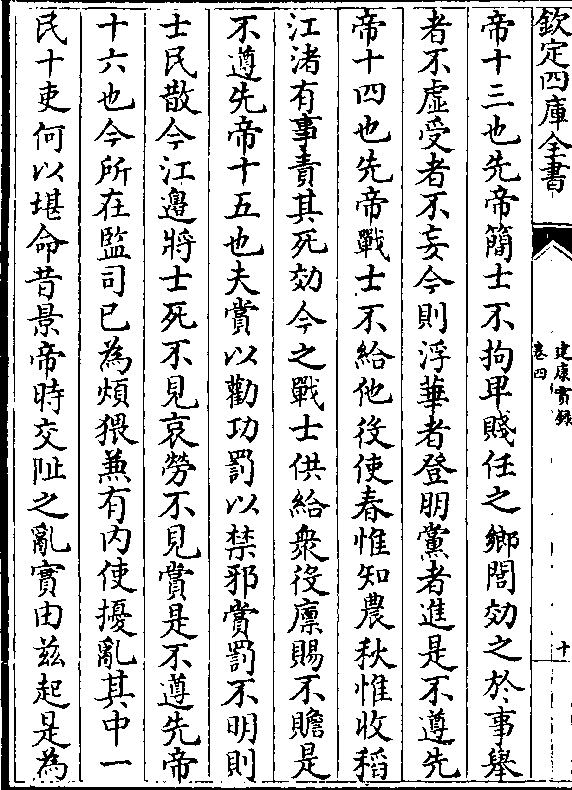 欽定四庫全書
建康實錄
卷四
十
帝十三也先帝簡士不拘卑賤任之鄉閭効之於事舉
者不虛受者不妄今則浮華者登朋黨者進是不遵先
帝十四也先帝戰士不給他役使春惟知農秋惟收稻
江渚有事責其死効今之戰士供給衆役廪賜不贍是
不遵先帝十五也夫賞以勸功罰以禁邪賞罰不明則
士民散今江邉將士死不見哀勞不見賞是不遵先帝
十六也今所在監司已為煩猥兼有内使擾亂其中一
民十吏何以堪命昔景帝時交阯之亂實由兹起是為